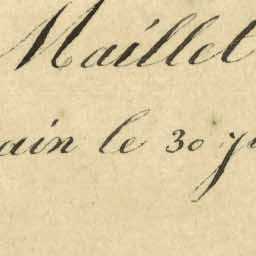 Maillet
ain le 30